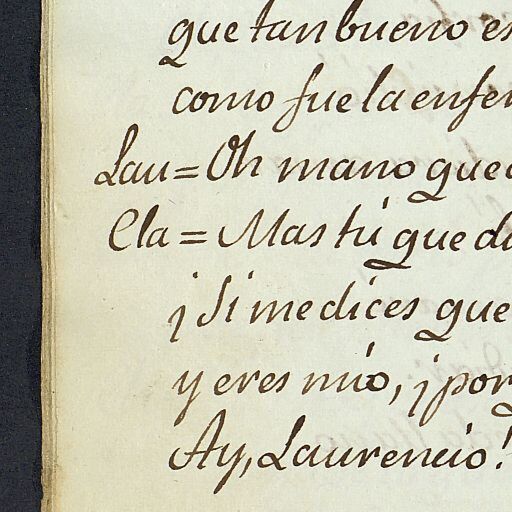 que tan bueno es
como fue la enfer
Lau = Oh mano que
Cla = Mas tú que da
¡Si me dices que
y eres mío, ¡por
Ay, Laurencio!